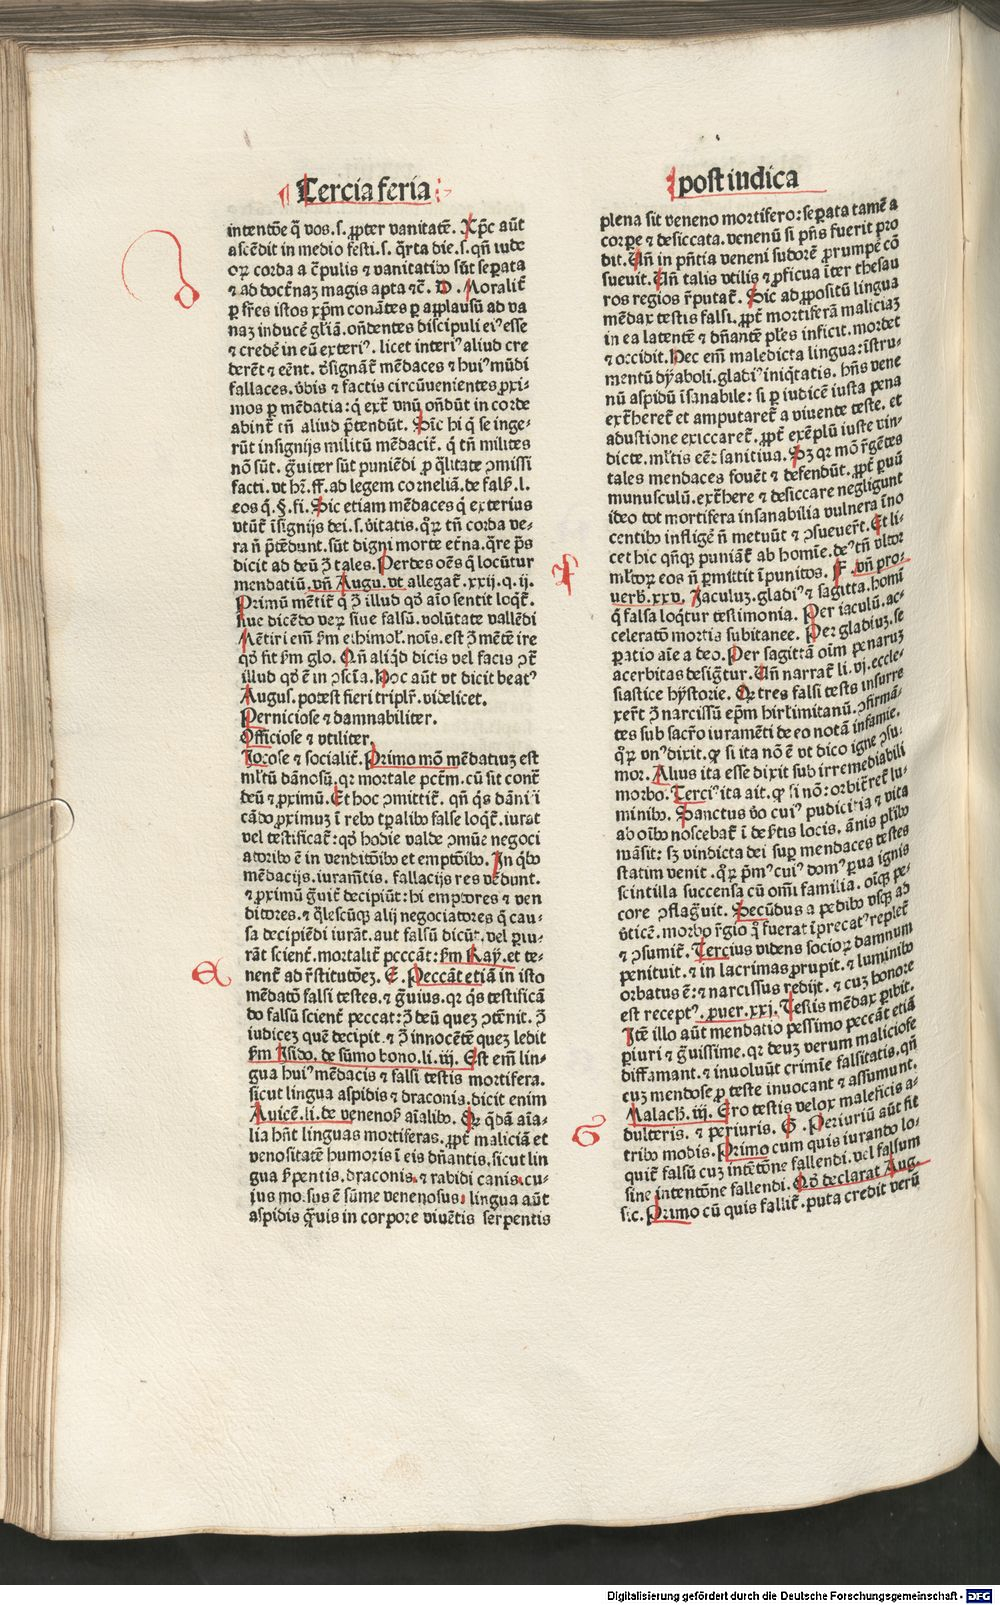 Tercia feria
intentōe q̄ vos.s.ꝓpter vanitatē. Xp̄c aūt
ascēdit in medio festi.s.q̄rta die.s.qn̄ iude
oꝝ corda a c̄pulis ⁊ vanitatibꝰ sūt sepata
⁊ ad doct̄naꝫ magis apta ⁊c̄. D. Moralit̄
p̲ fr̄es istos xp̄m conātes p̲ applausū ad va
naꝫ inducē gl'iā.on̄dentes discipuli eiꝰ esse
⁊ credē in eū exteriꝰ. licet interiꝰ aliud cre
derēt ⁊ eēnt. v̄signāt̄ mēdaces ⁊ huiꝰ mūdi
fallaces. v̄bis ⁊ factis circūuenientes ꝓxi-
mos p̲ mēdatia: q̄ ext̄ vnū on̄dūt in corde
abint̄ tn̄ aliud p̄tendūt. Sic hi q̄ se inge-
rūt insignijs militū mēdacit̄. q̄ tn̄ milites
nō sūt. ḡuiter sūt puniēdi ꝓ q̄litate ꝯmissi
facti. vt hr̄. ff. ad legem corneliā. de fals̄. l.
eos q̄. §. fi. Sic etiam mēdaces q̄ exterius
vtūt̄ īsignijs dei. s. v̄itatis. q̄ꝝ tn̄ corda ve-
ra n̄ p̄tēdunt. sūt digni morte et̄na. q̄re p̄s
dicit ad deū ꝯ̄ tales. Perdes oēs q̄ locūtur
mendatiū. vn̄ Augu. vt allegat̄. xxij. q. ij.
Primū mētit̄ q̄ ꝯ̄ illud qd̄ aīo sentit loqt̄.
siue dicēdo veꝝ siue falsū. volūtate vallēdi
Mētiri em̄ s̄m ethimol'. noīs. est ꝯ̄ mētē ire
qd̄ fit s̄m glo. Qn̄ aliq̄d dicis vel facis ꝯt̄
illud qd̄ ē in ꝯsciā. Hoc aūt vt dicit beatꝰ
Augus. potest fieri triplr̄. videlicet.
Perniciose ⁊ damnabiliter.
Officiose ⁊ vtiliter.
Iocose ⁊ socialit̄. Primo mō mēdatiuꝫ est
ml'tū dānosū. qr mortale pctm̄. cū sit cont̄
deū ⁊ ꝓximū. Et hoc ꝯmittit̄. qn̄ q̄s dāni i
cādo ꝓximuꝫ ī rebꝰ tp̲alibꝰ false loqt̄. iurat
vel testificat̄: qd̄ hodie valde ꝯmūe negoci
atoribꝰ ē in venditōibꝰ et emptōibꝰ. In q̄bꝰ
mēdacijs. iuramt̄is. fallacijs res vēdunt.
⁊ ꝓximū ḡuit̄ decipiūt: hi emptores ⁊ ven
ditores. ⁊ q̄lescūqꝫ alij negociatores q̄ cau-
sa decipiēdi iurāt. aut falsū dicūt. vel p̲iu-
rāt scient̄. mortalit̄ pcccāt: s̄m Ray. et te-
nent̄ ad r̄stitutōeꝫ. E. Peccāt etiā in isto
mēdatō falsi testes. ⁊ ḡuius. qr q̄s testificā
do falsū scient̄ peccat: ꝯ̄ deū quez ꝯtēnit. ꝯ̄
iudiceꝫ quē decipit. ⁊ ꝯ̄ innocētē quez ledit
s̄m Isido. de sūmo bono. li. iij. Est em̄ lin-
gua huiꝰ mēdacis ⁊ falsi testis mortifera.
sicut lingua aspidis ⁊ draconis. dicit enim
Auicē. li. de venenosꝭ aīalibꝰ. Qꝛ q̄dā aīa-
lia hn̄t linguas mortiferas. ꝓpt̄ maliciā et
venositatē humoris ī eis dn̄antis. sicut lin
gua s̲pentis. draconis. ⁊ rabidi canis. cu-
ius morsus ē sūme venenosus: lingua aūt
aspidis q̄uis in corpore viuētis serpentis
D
E
post iudica
plena sit veneno mortifero: sep̲ata tamē a
corp̲e ⁊ desiccata. venenū si p̄ns fuerit pro
dit. Un̄ in p̄ntia veneni sudorē ꝓrumpē cō
sueuit. Un̄ talis vtilis ⁊ ꝓficua īter thesau
ros regios r̄putat̄. Sic ad ꝓpositū lingua
mēdax testis falsi. ꝓpt̄ mortiferā maliciaꝫ
in ea latentē ⁊ dn̄antē pl̄es inficit. mordet
⁊ occidit. Hec em̄ maledicta lingua: īstru-
mentū dyaboli. gladiꝰ iniq̄tatis. hn̄s vene
nū aspidū īsanabile: si p̲ iudicē iusta pena
ext̄heret̄ et amputaret̄ a viuente teste. et
adustione exiccaret̄. ꝓpt̄ exēplū iuste vin-
dicte. ml'tis eēt sanitiua. Sꝫ qr mō r̄gētes
tales mendaces fouēt ⁊ defendūt. ꝓpt̄ p̲uū
munusculū. ext̄here ⁊ desiccare negligunt
ideo tot mortifera insanabilia vulnera īno
centibꝰ infligē n̄ metuūt ⁊ ꝯsueuer̄t. Et li-
cet hic qn̄qꝫ puniāt̄ ab homīe. deꝰ tn̄ vltor
ml'toꝝ eos n̄ p̲mittit īpunitos. F. vn̄ pro-
uerb. xxv. Iaculuꝫ. gladiꝰ ⁊ sagitta. homī
q̄ falsa loqt̄ur testimonia. Per iaculū. ac-
celeratō mortis subitanee. Per gladiuꝫ. se
p̲atio aīe a deo. Per sagittā oīm penaruꝫ
acerbitas desigt̄ur. Un̄ narrat̄ li. vj. eccle-
siastice hystorie. Qꝛ tres falsi tests insurre
xer̄t ꝯ̄ narcissū ep̄m hirl'imitanū. ꝯfirmā-
tes sub sacr̄o iuramēti de eo notā infamie.
q̄ꝝ vnꝰ dixit. qꝛ si ita nō ē vt dico igne ꝯsu-
mor. Alius ita esse dixit sub irremediabili
morbo. Terciꝰ ita ait. qꝛ si nō: orbit̄ret̄ lu-
minibꝰ. Sanctus v̄o cuiꝰ pudicitia ⁊ vita
ab oībꝰ noscebat̄ ī desertis locis. ānis pl'ibꝰ
māsit: sꝫ vindicta dei sup̲ mendaces testes
statim venit. q̄ꝝ p̄mꝰ cuiꝰ domꝰ p̲ua ignis
scintilla succensa cū om̄i familia. oīqꝫ pe-
core ꝯflaḡuit. Secūdus a pedibꝰ vsqꝫ ad
v̄ticē. morbo r̄gio q̄ fuerat īprecatꝰ replet̄
⁊ ꝯsumit̄. Tercius videns socioꝝ damnum
penituit. ⁊ in lacrimas ꝓrupit. ⁊ luminibꝰ
orbatus ē: ⁊ narcissus redijt. ⁊ cuꝫ honore
est receptꝰ. ꝓuer. xxj. Testis mēdax p̲ibit.
Itē illo aūt mendatio pessimo peccāt etiā
p̲iuri ⁊ ḡuissime. qr deuꝫ verum maliciose
diffamant. ⁊ inuoluūt crimīe falsitatis. qn̄
cuꝫ mendose ꝓ teste inuocant ⁊ assumunt.
Malach. iij. Ero testis velox maleficis a-
dulteris. ⁊ periuris. G. Periuriū aūt fit
tribꝰ modis. Primo cum quis iurando lo-
quit̄ falsū cuꝫ intētōne fallendi. vel falsum
sine intentōne fallendi. Qd̄ declarat Aug.
sic. Primo cū quis fallit̄. puta credit verū
F
G
Digitalisierung gefördert durch die Deutsche Forschungsgemeinschaft - DFG